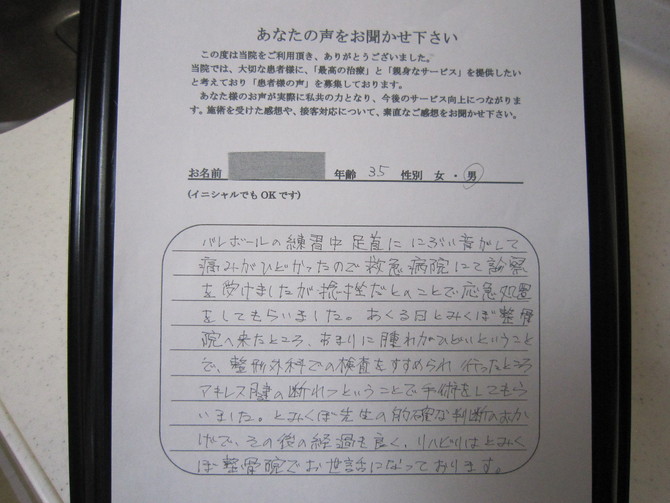 あなたの声をお聞かせ下さい
この度は当院をご利用頂き、ありがとうございました。
当院では、大切な患者様に、「最高の治療」と「親身なサービス」を提供したい
と考えており「患者様の声」を募集しております。
あなた様のお声が実際に私共の力となり、今後のサービス向上につながりま
す。施術を受けた感想や、接客対応について、素直なご感想をお聞かせ下さい。
お名前 年齢 35 性別 女 ・ 男
(イニシャルでもOKです)
バレボールの練習中 足首に にぶい音がして
痛みがひどかったので 救急病院にて診察
を受けましたが捻挫だとのことで応急処置
をしてもらいました。あくる日とみくぼ整骨
院へ来たところ、あまりに腫れがひどいということ
で、整形外科での検査をすすめられ 行ったところ
アキレス腱の断れつということで手術をしてもら
いました。とみくぼ先生の的確な判断のおか
げで、その後の経過も良く、リハビリはとみく
ぼ整骨院でお世話になっております。